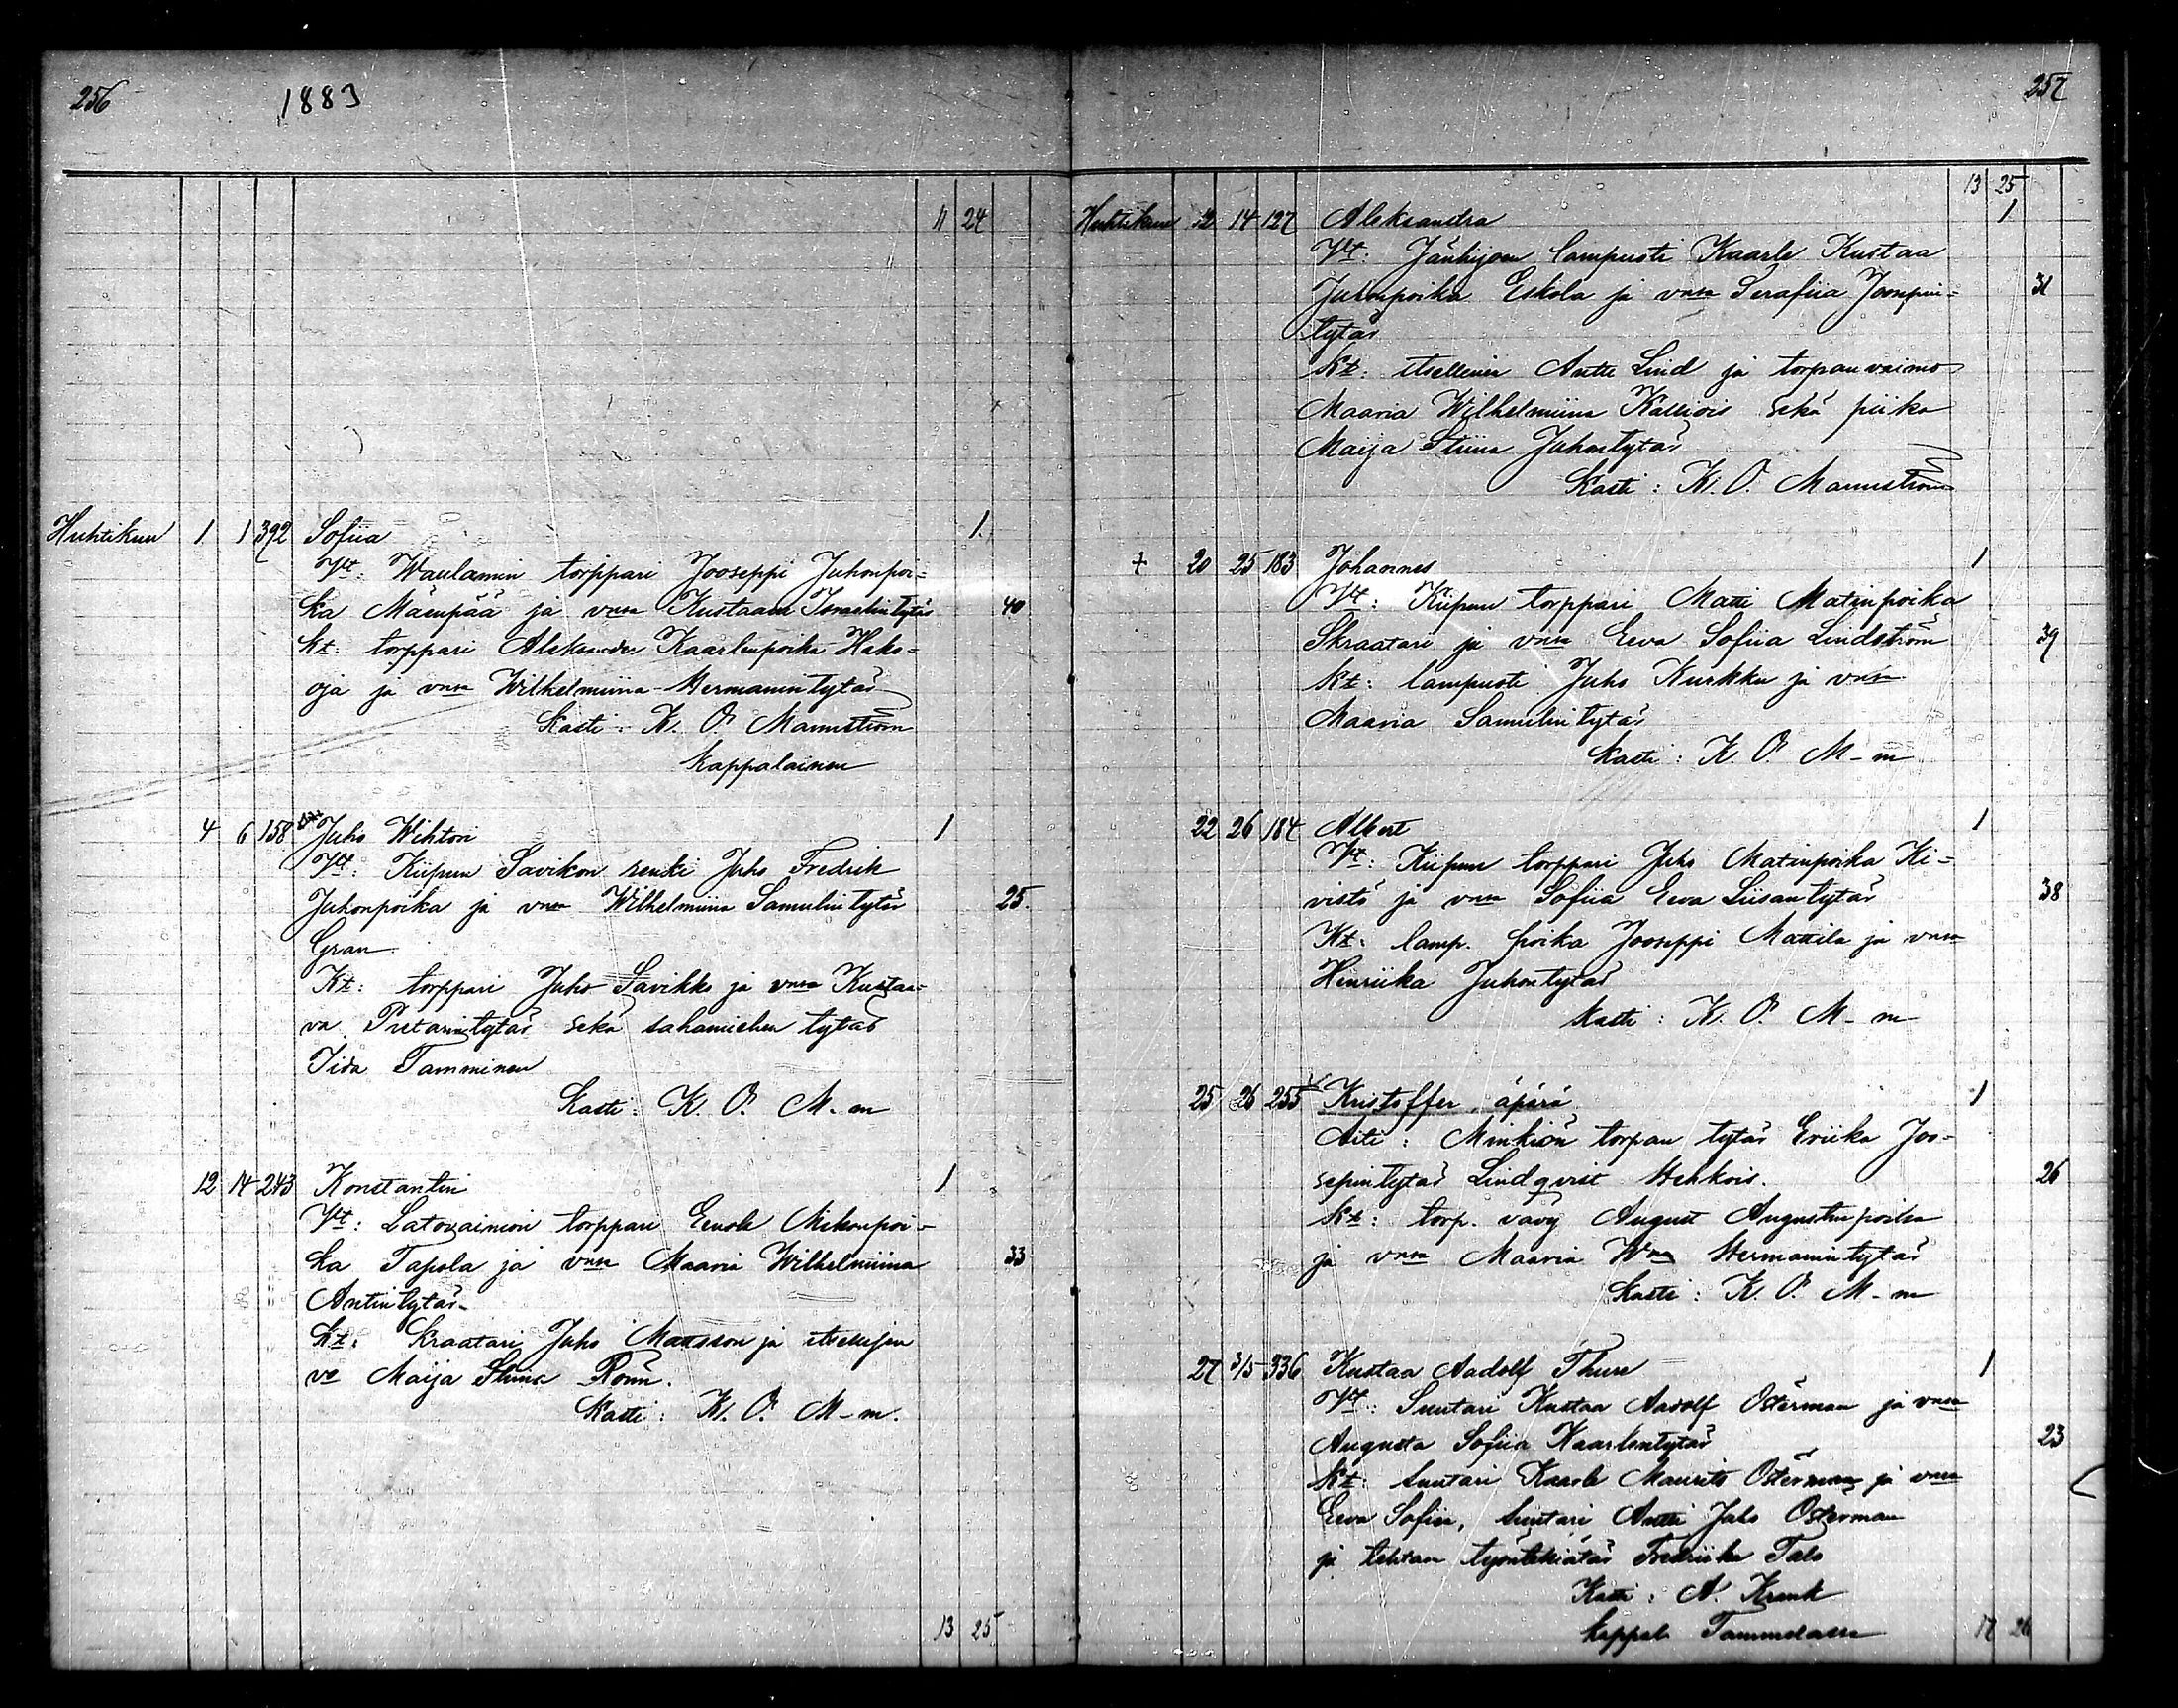 256 1883
11 24
Huhtikuu 1 1 392 Sofiia 1
Vt: Waulamin torppari Jooseppi Juhonpoi=
ka Mäenpää ja vmsa Kustaava Israelintytär 40
Kt: torppari Aleksander Kaarlenpoika Hako=
oja ja vmsa Wilhelmiina Hermannintytär
Kasti: K. O. Mannström
Kappalainen
4 6 158 Juho Wihtori 1
Vt: Kiipun Savikon renki Juho Fredrik
Juhonpoika ja vmsa Wilhelmiina Samulintytär 25.
Gran
Kt: torppari Juho Savikko ja vmsa Kustaa-
va tytär sekä sahamiehen tytär
Iida Tamminen
Kasti: K. O. M-m
12 14 243 Konstantin 1
Vt: Latovainion torppari Eenok Mikonpoi-
ka Tapola ja vmsa Maaria Wilhelmiina 33
Antintytär
Kt: Kraatari Juho Mattsson ja itsellisen
vo Maija Stiina Rönn.
Kasti: K. O. M-m.
13 25
257
13 25
Huhtikuu 12 14 127 Aleksandra 1
Vt: Jänhijoen lampuoti Kaarle Kustaa
Juhonpoika Eskola ja vmsa Serafiia Joosepin= 31
tytär
Kt: itsellinen Antti Lind ja torpanvaimo
Maaria Wilhelmiina Kalliois sekä piika
Maija Stiina Juhontytär
Kasti: K. O. Mannström
+ 20 25 183 Johannes 1
Vt: Kiipun torppari Matti Matinpoika
Skraatari ja vmsa Eeva Sofiia Lindström 39
Kt: lampuoti Juho Kurkku ja vmsa
Maaria Samulintytär
Kasti: K. O. M-m
22 26 184 Albert 1
Vt: Kiipun torppari Juho Matinpoika Ki-
vistö ja vmsa Sofiia Eeva Liisantytär 38
Kt: lamp. poika Jooseppi Mattila ja vmsa
Henriika Juhontytär
Kasti: K. O. M-m
25 26 255 Kristoffer, äpärä 1
Äiti: Minkiön torpan tytär Eriika Joo-
sepintytär Lindqvist Hehkois. 26
Kt: torp. vävy August Augustinpoika
ja vmsa Maaria Wna Hermannintytär
Kasti: K. O. M-m
27 3/5 336 Kustaa Aadolf Thure 1
Vt: Suutari Kustaa Aadolf Österman ja vmsa
Augusta Sofiia Kaarlentytär 23
Kt: Suutari Kaarle Maurits Österman ja vmsa
Eeva Sofiia, Suutari Antti Juho Österman
ja tehtaan työntekiätär Fredriika Talo
Kasti: A. Krank
Kappal. Tammelassa 17 26